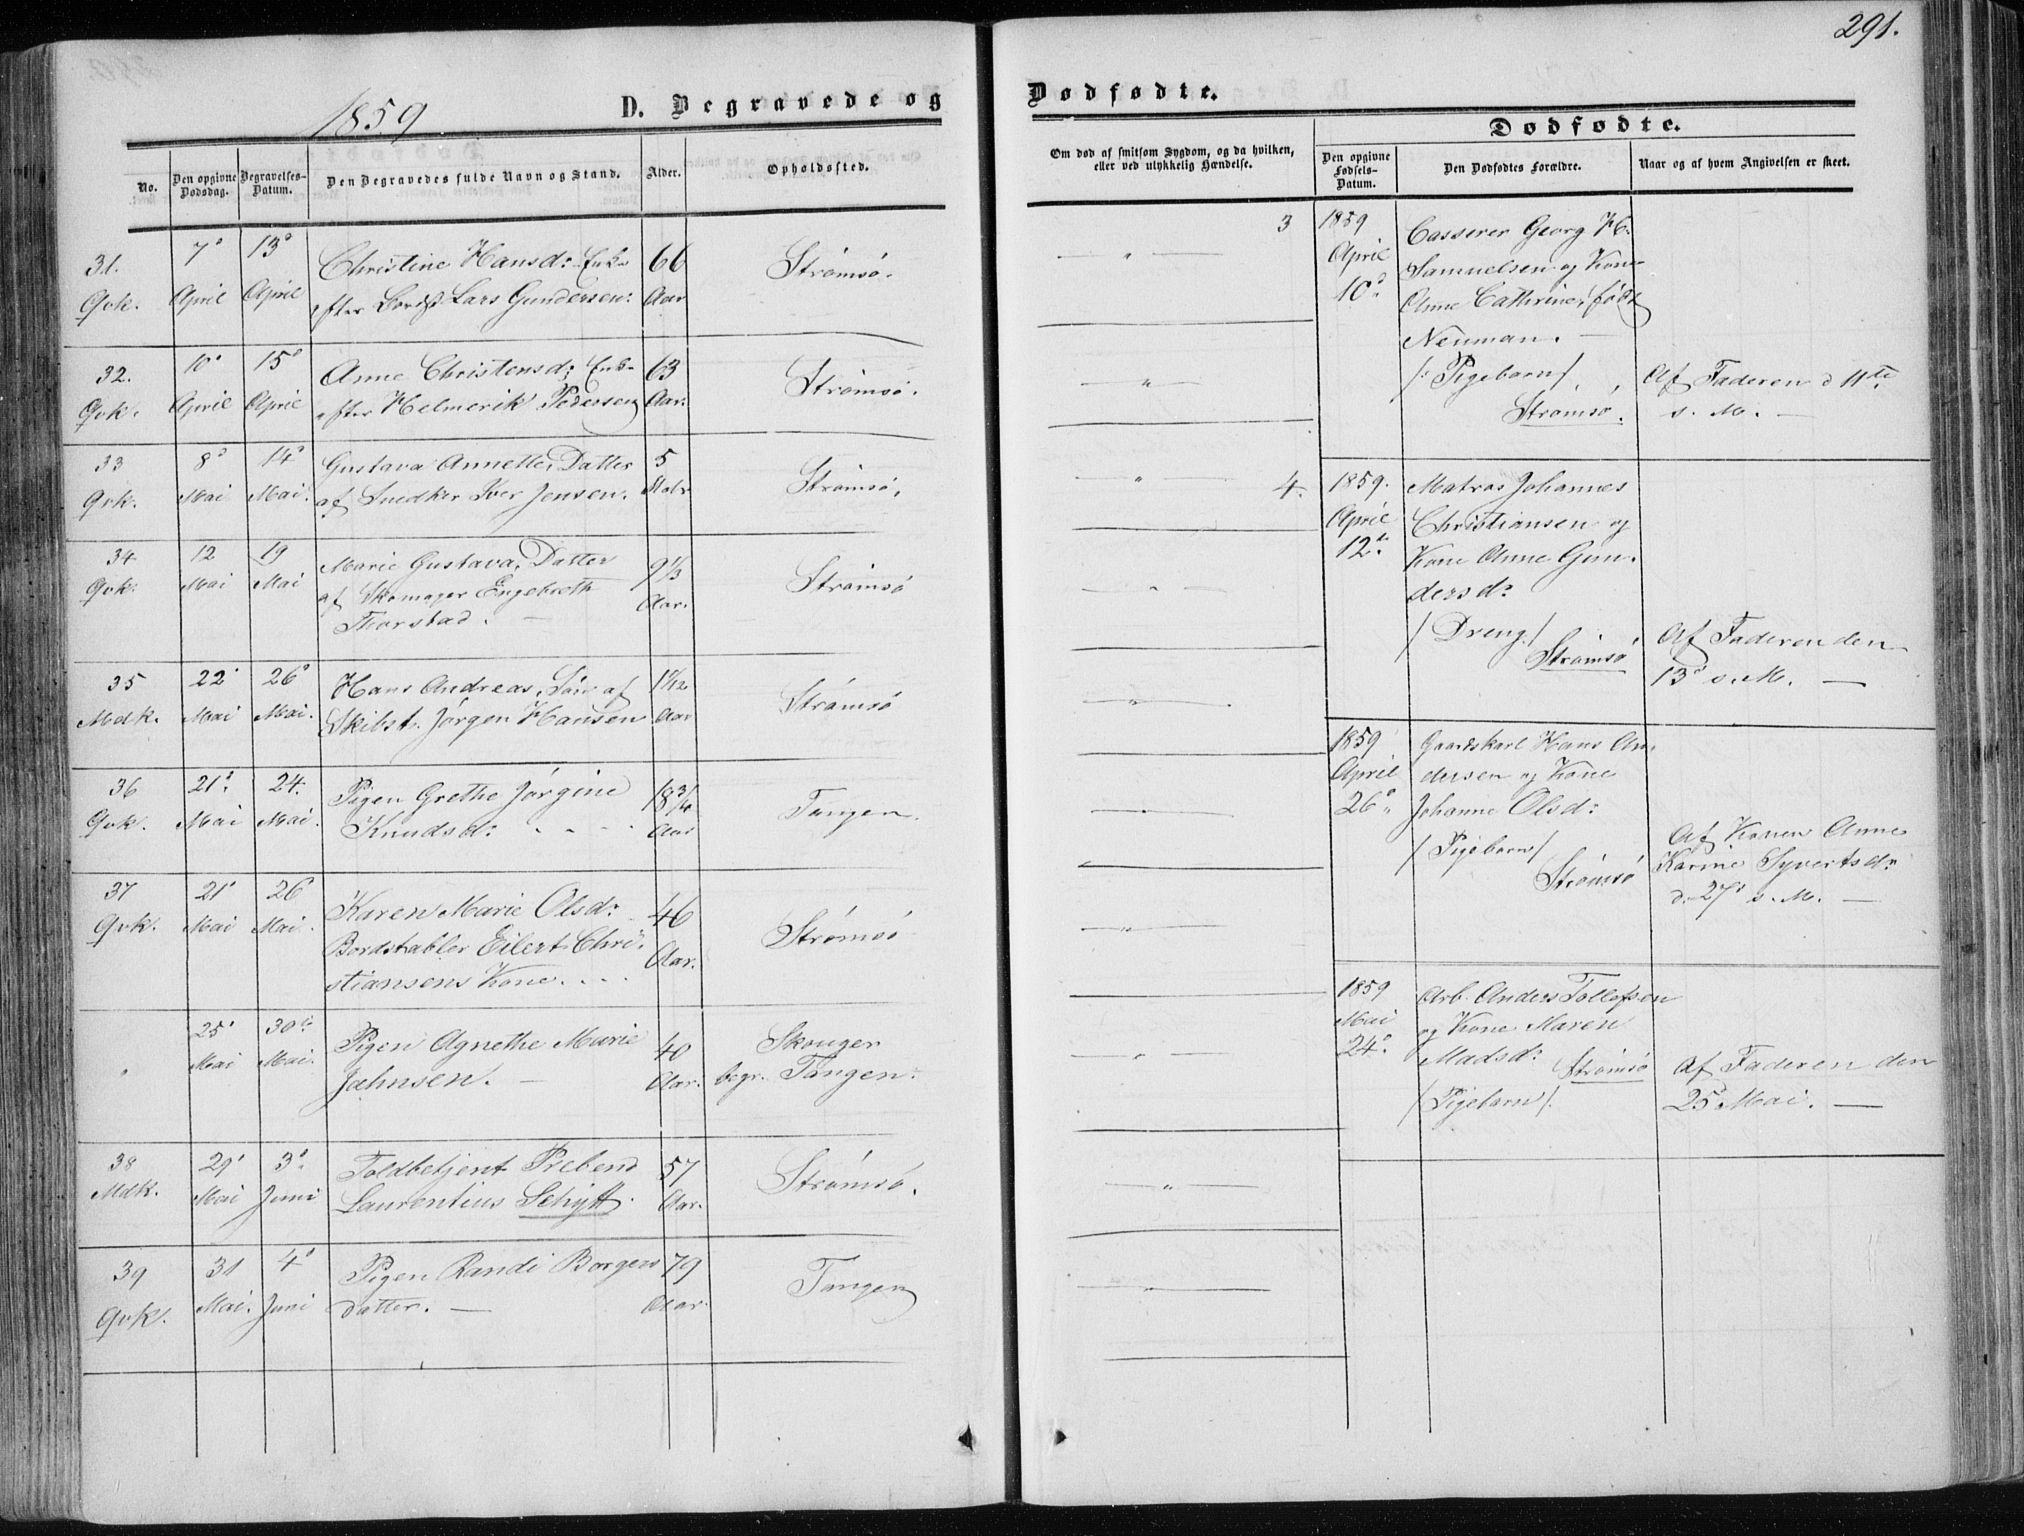 291.
1859
D. Begravede og
Dødfødte.
No.
Den opgivne Dødsdag.
Begravelses-Datum.
Den Begravedes fulde Navn og Stand.
Alder.
Opholdssted.
Om død af smitsom Sygdom, og da hvilken, eller ved ulykkelig Hændelse.
Dødfødte.
Den opgivne Fødsels-Datum.
Den Dødfødtes Forældre.
Naar og af hvem Angivelsen er skeet.
31. Qvk.
7de April
13de April
Christine Hansd: Enke
efter Lars Gundersen:
66 Aar
Strømsø.
32. Qvk.
10de April
15de April
Anne Christensd: Enke
efter Helmerik Pedersen
63 Aar.
Strømsø.
33 Qvk.
8de Mai
14de Mai.
Gustava Annette, Datter
af Snedker Iver Jensen.
5
Strømsø,
34 Qvk.
12 Mai
19 Mai
Marie Gustava, Datter
af Skomager Engebreth
Thorstad.
9 1/3 Aar.
Strømsø
35 Mdk.
22 Mai
26 Mai.
Hans Andreas, Søn af
Skibst. Jørgen Hansen
Aar
Strømsø
36 Qvk.
21 Mai
24. Mai.
Pigen Grethe Jørgine
Knudsd:
18 3/4 Aar
Tangen.
37 Qvk.
21 Mai
26 Mai.
Karen Marie Olsd:
Bordstabler Eilert Chri-
stiansens Kone.
46 Aar.
Strømsø
"
25 Mai
30te Mai.
Pigen Agnethe Marie
Jahnsen.
40 Aar.
Skouger
begr. Tangen.
38 Mdk.
29 Mai
3de Juni
Toldbetjent Preben
Laurentius Schytt.
57 Aar.
Strømsø.
39 Qvk.
31 Mai.
4de Juni
Pigen Randi Borgers
datter.
79 Aar.
Tangen
3
1859
April
10de
Casserer Georg H.
Samuelsen og Kone
Anne Cathrine, født
Neuman.
/: Pigebarn /
Strømsø.
Af Faderen d 11te
s. M.
4.
1859.
April
12te
Matros Johannes
Christiansen og
Kone Anne Gun-
dersd:
/ Dreng /
Strømsø
Af Faderen den
13de s. M.
1859
April
26de
Gaardskarl Hans An-
dersen og Kone
Johanne Olsd:
/ Pigebarn /
Strømsø
Af Konen Anne
Karine Syvertsd:
d. 27de s. M.
1859
Mai
24de
Arb. Anders Tollefsen
og Kone Maren
Madsd:
Strømsø
/ Pigebarn /.
Af Faderen den
25de Mai.